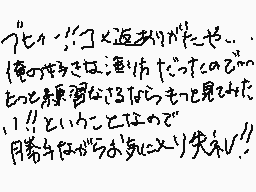 ブヒィー!!コメ返ありがたやー..
俺の好きな塗り方だったので…
もっと練習なさるならもっと見てみた
い!!ということなので
勝手ながらお気に入り失礼!!